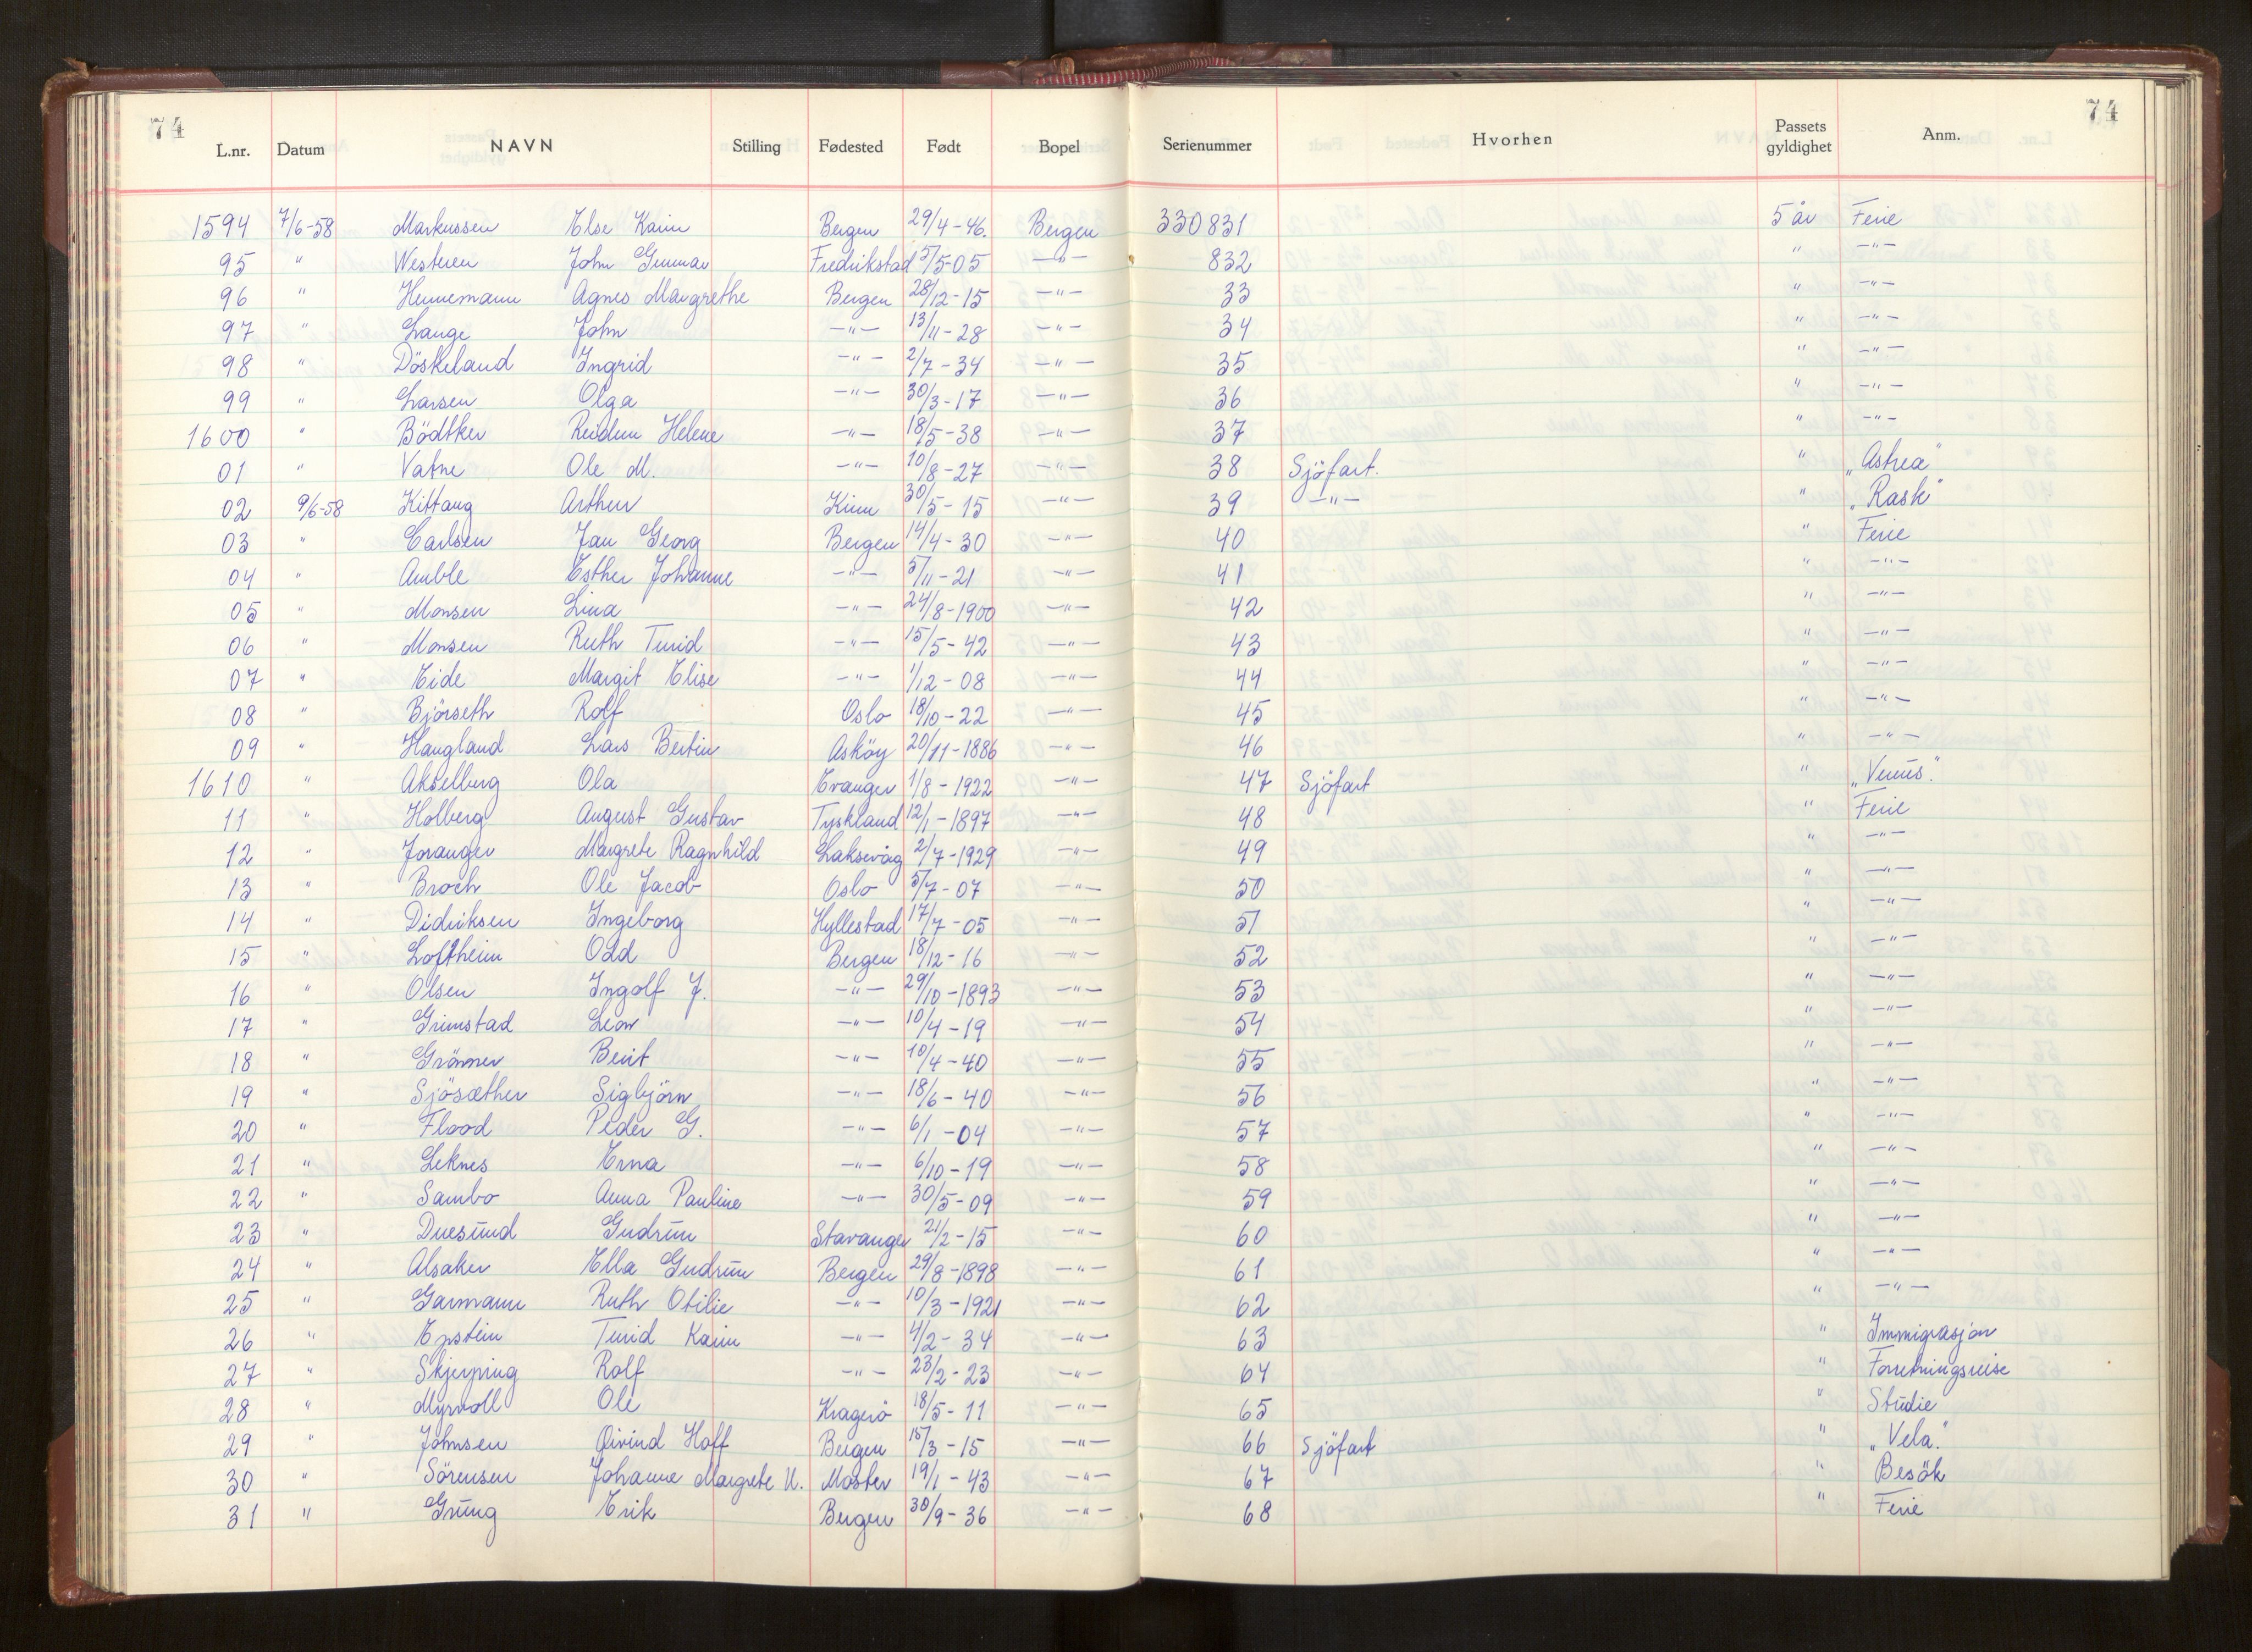 74 74
L.nr. Datum NAVN Stilling Fødested Født Bopel Serienummer Hvorhen Passets gyldighet Anm.
1594 7/6-58 Markussen Else Karin Bergen 29/4-46. Bergen 330831 5 år Ferie
95 " Westvern John Gunnar Fredrikstad 5/5-05 -"- 832 " -"-
96 " Hennemann Agnes Margrethe Bergen 28/12-15 -"- 33 " -"-
97 " Lange John -"- 13/11-28 -"- 34 " -"-
98 " Döskeland Ingrid -"- 2/7-34 -"- 35 " -"-
99 " Larsen Olga -"- 30/3-17 -"- 36 " -"-
1600 " Bödtker Reidun Helene -"- 18/5-38 -"- 37 " -"-
01 " Vatne Ole M. -"- 10/8-27 -"- 38 Sjöfart. " „Astrea"
02 9/6-58 Kittang Arthur Kinn 30/5-15 -"- 39 -"- " „Rask"
03 " Carlsen Jan Georg Bergen 14/4-30 -"- 40 " Ferie
04 " Amble Esther Johanne -"- 5/11-21 -"- 41 " -"-
05 " Monsen Lina -"- 24/8-1900 -"- 42 " -"-
06 " Monsen Ruth Turid -"- 15/5-42 -"- 43 " -"-
07 " Eide Margit Elise -"- 1/12-08 -"- 44 " -"-
08 " Björseth Rolf Oslo 18/10-22 -"- 45 " -"-
09 " Haugland Lars Bertin Asköy 20/11-1886 -"- 46 " -"-
1610 " Akselberg Ola Evanger 1/8-1922 -"- 47 Sjöfart " „Venus."
11 " Holberg August Gustav Tyskland 12/1-1897 -"- 48 " Ferie
12 " Joranger Margrete Ragnhild Laksevåg 2/7-1929 -"- 49 " -"-
13 " Broch Ole Jacob Oslo 5/7-07 -"- 50 " -"-
14 " Didriksen Ingeborg Hyllestad 17/7-05 -"- 51 " -"-
15 " Loftheim Odd Bergen 18/12-16 -"- 52 " -"-
16 " Olsen Ingolf J. -"- 29/10-1893 -"- 53 " -"-
17 " Grimstad Leon -"- 10/4-19 -"- 54 " -"-
18 " Grönner Berit -"- 10/4-40 -"- 55 " -"-
19 " Sjösæther Sigbjörn -"- 18/6-40 -"- 56 " -"-
20 " Flood Peder G. -"- 6/1-04 -"- 57 " -"-
21 " Leknes Erna -"- 6/10-19 -"- 58 " -"-
22 " Sambo Anna Pauline -"- 30/5-09 -"- 59 " -"-
23 " Duesund Gudrun Stavanger 21/2-15 -"- 60 " -"-
24 " Alsaker Ella Gudrun Bergen 29/8-1898 -"- 61 " -"-
25 " Garmann Ruth Otilie -"- 10/3-1921 -"- 62 " -"-
26 " Epstein Turid Karin -"- 4/2-34 -"- 63 " Immigrasjon
27 " Skjerping Rolf -"- 23/2-23 -"- 64 " Forretningsreise
28 " Myrvoll Ole Kragerö 18/5-11 -"- 65 " Studie
29 " Johnsen Øivind Hoff Bergen 15/3-15 -"- 66 Sjöfart " „Vela."
30 " Sörensen Johanne Margrete U. Moster 19/1-43 -"- 67 " Besök
31 " Grung Erik Bergen 30/9-36 -"- 68 " Ferie